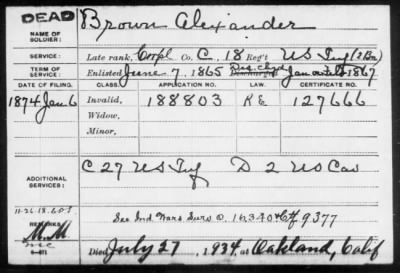 DEAD
NAME OF SOLDIER: Brown Alexander
SERVICE: Late rank, Corpl Co. C, 18 Reg't US Inf (2 Bn)
Enlisted June 7, 1865 Discharged Jan 1867
DATE OF FILING. CLASS. APPLICATION NO. LAW. CERTIFICATE NO.
1874 Jan 6 Invalid, 188803 127666
Widow,
Minor,
C 27 US Inf D 2 US Cav
ADDITIONAL SERVICES:
REMARKS: See Ind Wars Surv O. Ctf 9377
M.M
Died July 27, 1934, at Oakland, Calif